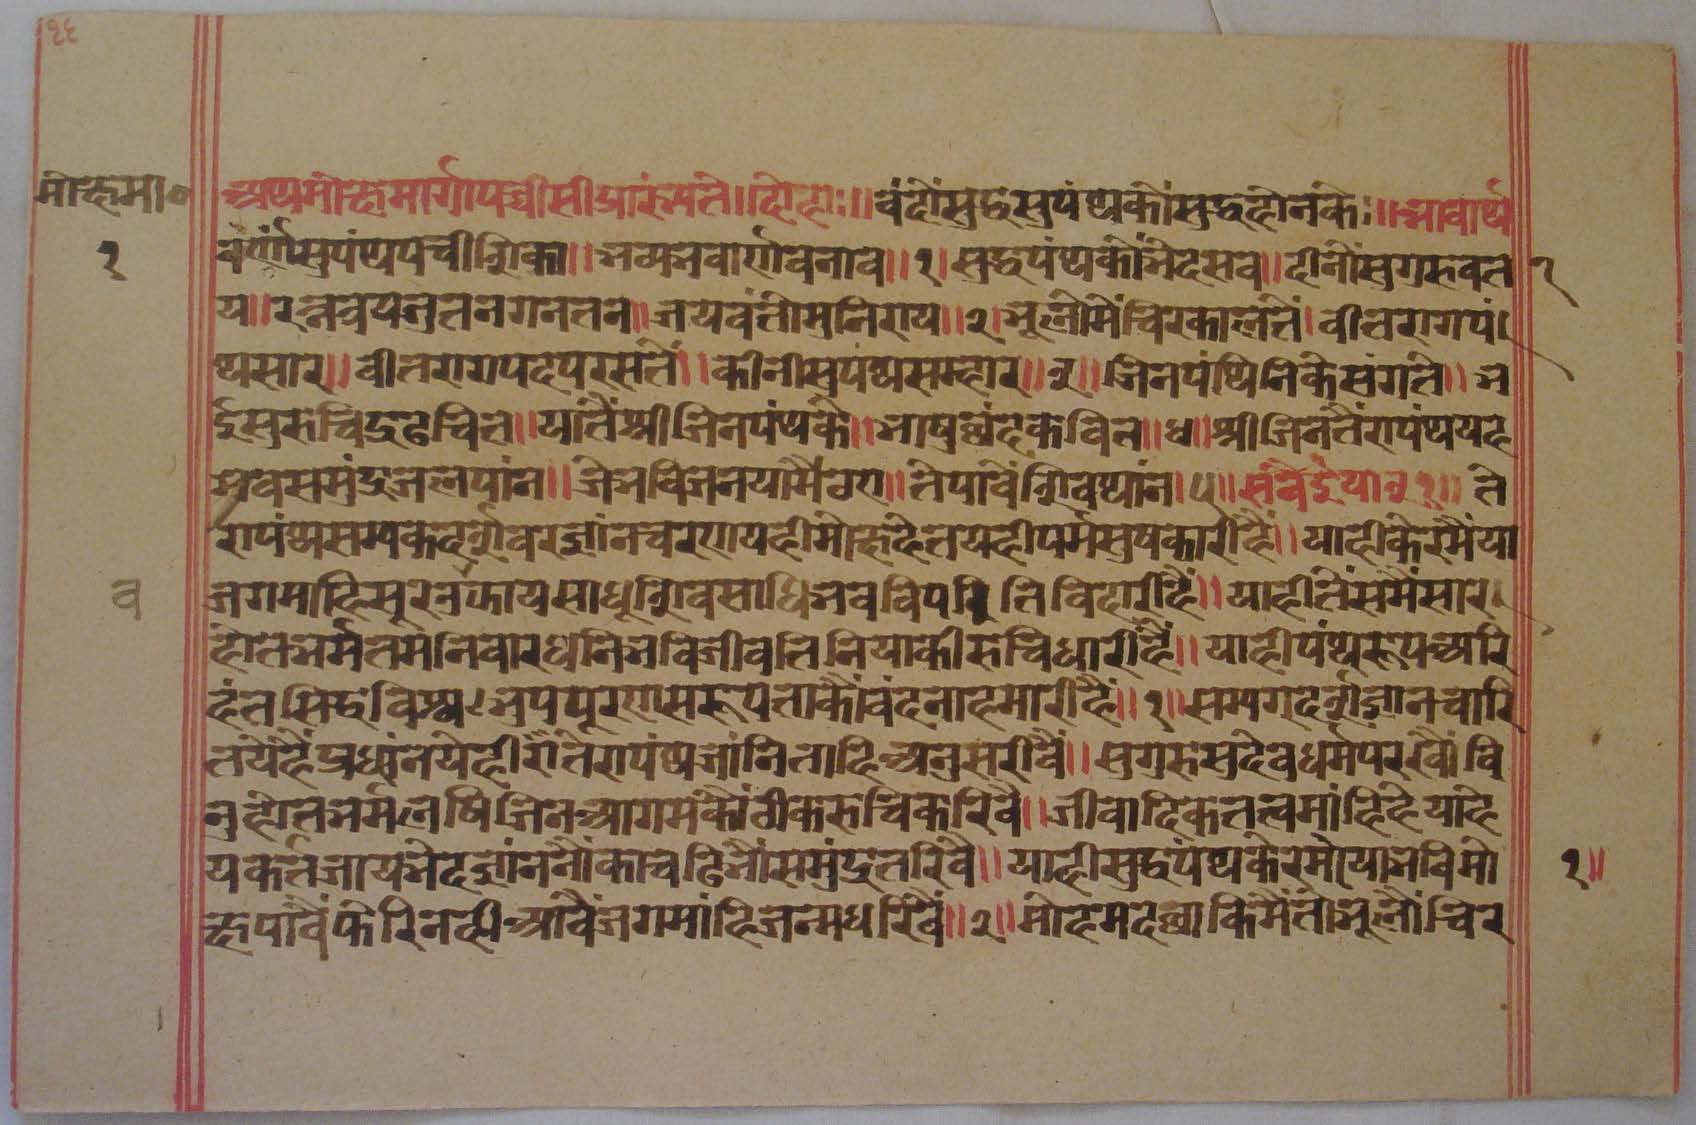 १६
मोक्षमा०
अथमोक्षमार्गपच्चीसीप्रारंभ्यते।दोहाः॥वंदौंसुद्धसुपंथकौंसुद्धहोनंकेः॥भावार्थ
१
वर्णौंसुपंथपचीशिका॥भव्यभवार्णवनाव॥१।सुद्धपंथकौंभेदसब॥दीनौंसुगुरुवत
य॥रत्नत्रयजुतनगनतन॥जयवंतोमुनिराय॥२।भूलौमैंचिरकालतैं।वीतरागपं
थसार॥वीतरागपदपरसतैं॥कीनौसुपंथसम्हार॥३॥जिनपंथिनिकेसंगते॥भ
ईसुरुचिदृढचित॥यातैंश्रीजिनपंथके॥भाषुछंदकवित॥४॥श्रीजिनतैंरापंथयह
भवसमुंद्रजलपांन॥जेभविजनयामैंचरण॥तेपावैंशिवथांन।५॥सवैईया३१॥ते
रापंथसम्यकदर्शवरज्ञांनचरणयहीमोक्षहेतयहीपर्मसुषकारीहैं॥याहीकेरमैंया
जगमाहिसुरनरकायसाधूशिवसाधिभवविपरितिविदारीहैं॥याहीतैंसमैंसार
व
होतभर्मतमनिवारधनिभविजीवतिनियाकीरुचिधारीहैं॥याहीपंथरूपअरि
हंतसिद्धविश्वभूपपूरणसरूपताकौंवंदनाहमारीहैं॥१॥सम्यगदर्शज्ञानचारि
तयेहैंप्रधांनयेहीतेरापंथजांनिताहिअनुसरीवैं॥सुगुरुसुदेवधर्मपरखौवि
नुहोतभर्मलषिजिनआगमकौंठीकरुचिकरिवै॥जीवादिकतत्वमांहिहेयाहे
यकर्तजायभेदज्ञांननौंकाचढिभौंसमुंद्रतरिवै॥याहीसुद्धपंथकेरमैयाभविमो
१॥
क्षपावैंफेरिनहीआवैंजगमांहिजन्मधरिवैं॥२॥मोहमदछाकिमैंतोभूलौंचिर